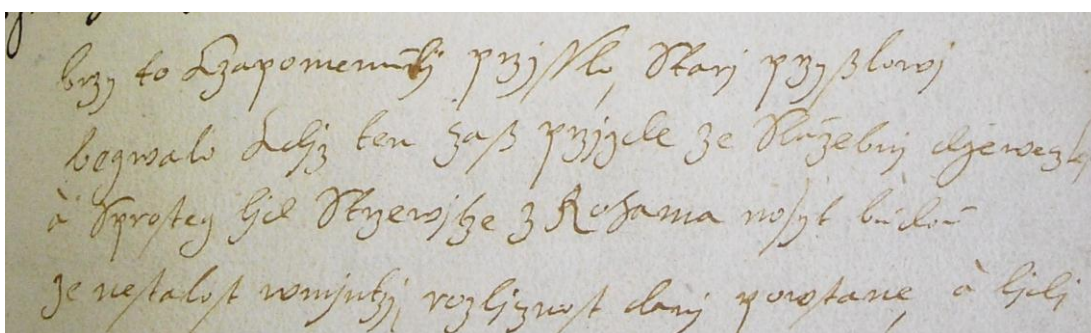 brzy to k zapomenutj przisslo, Starj przyßlowj
begwalo kdiz ten zaß przigde ze Služebnj djeweczky
à Sprostey lid Strzewjcze z Rohama nosyt budou
ze nestalost wnijtzj, rozliznost danj powstane, à lidj